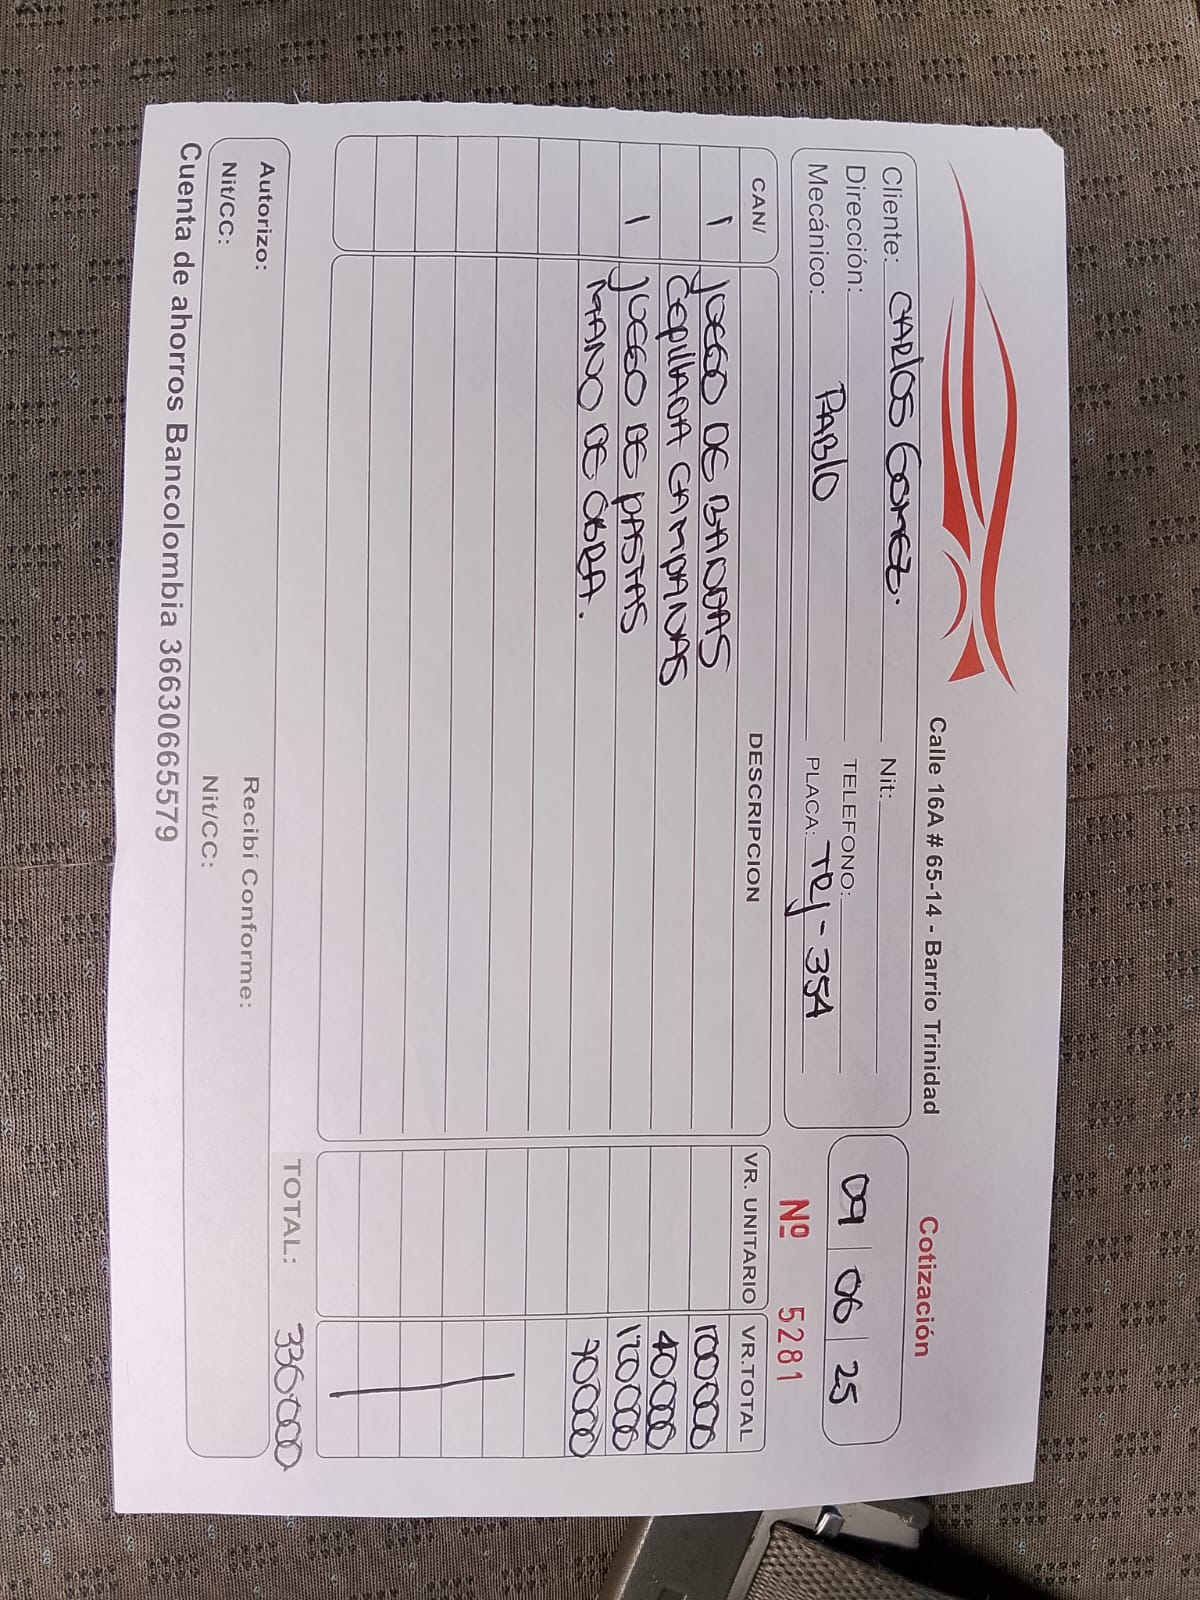 Calle 16A # 65-14 - Barrio Trinidad
Cotización
Cliente: CARLOS GOMEZ.
Nit:
09 06 25
Dirección:
TELEFONO:
Mecánico: PABLO
PLACA: TRJ-354
Nº 5281
CAN/ DESCRIPCION VR. UNITARIO VR.TOTAL
1 JUEGO DE BANDAS 100000
Cepillada CAMPANAS 40000
1 JUEGO DE PASTAS 120000
MANO DE OBRA. 70000
TOTAL: 330000
Autorizo:
Recibí Conforme:
Nit/CC:
Nit/CC:
Cuenta de ahorros Bancolombia 36630665579